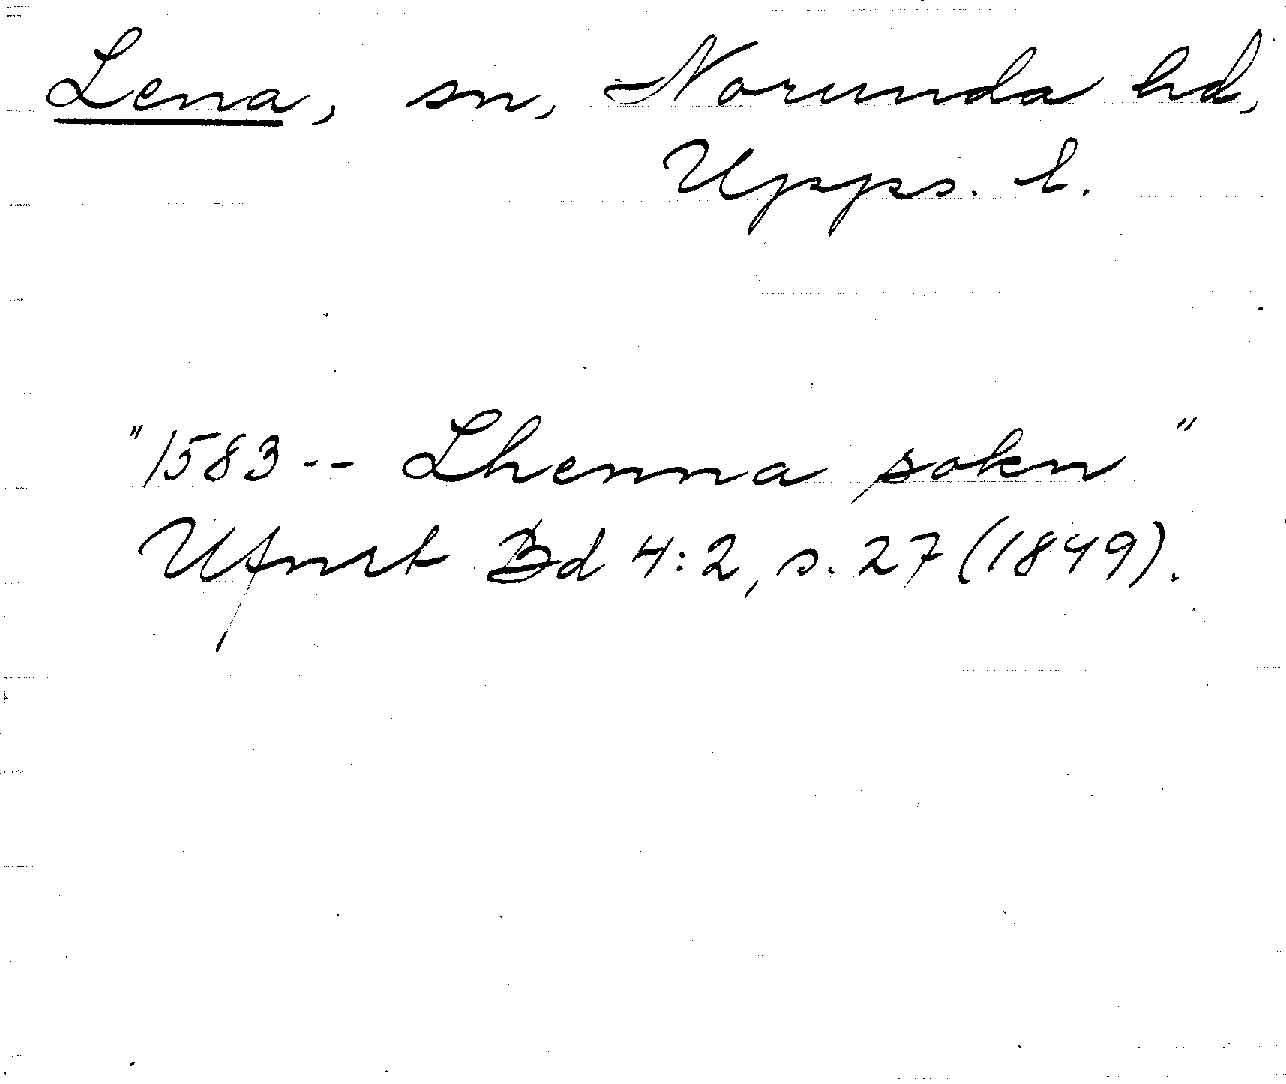 Lena, sn, Norunda hd,
Upps. l.
"1583-- Lhenna sokn"
Ufmt Bd 4:2, s. 27 (1849).